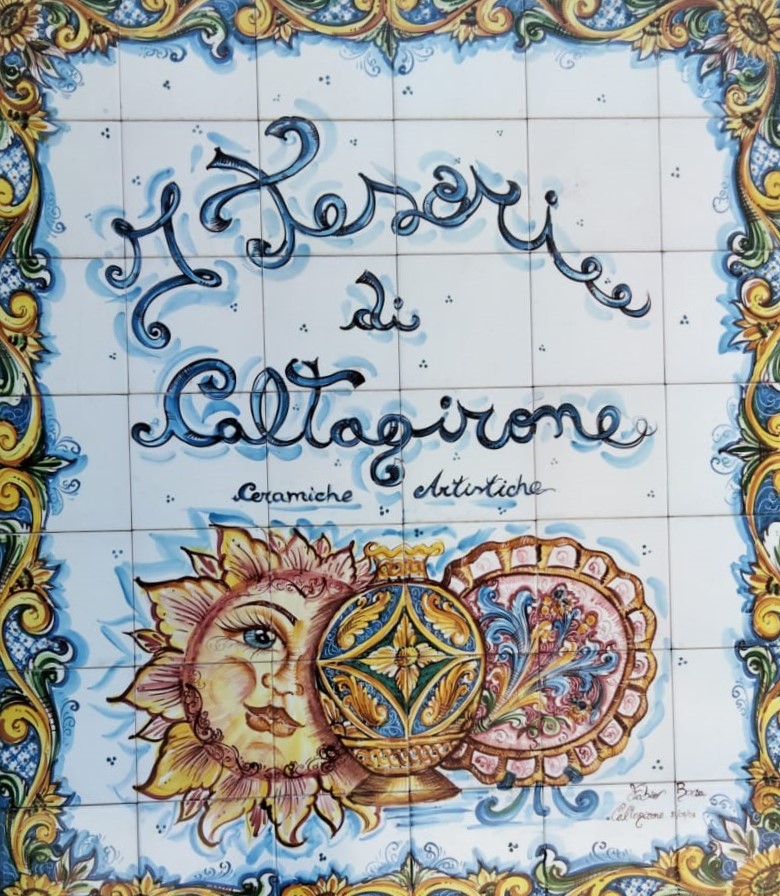 I Tesori
di
Caltagirone
Ceramiche Artistiche
Caltagirone